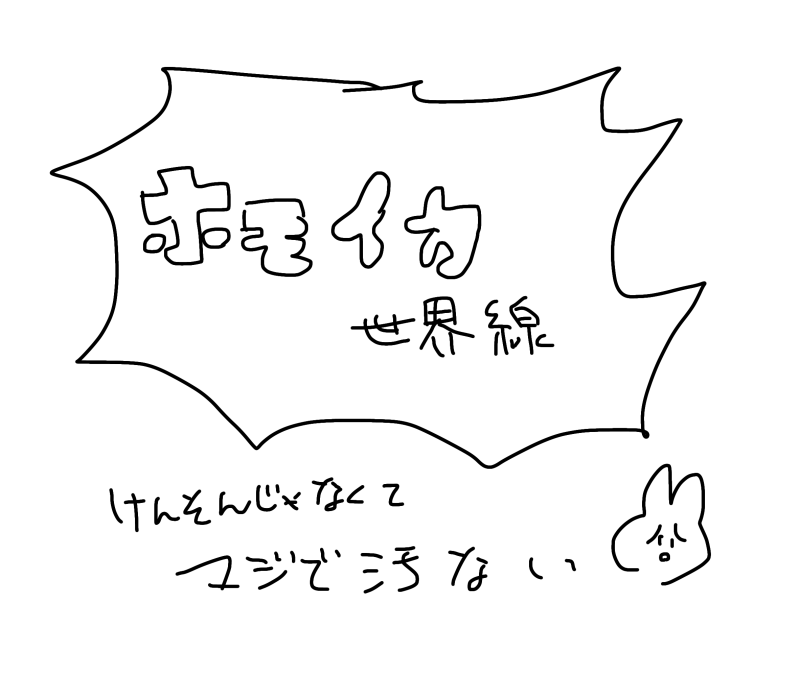 ホモイカ
世界線
けんそんじゃなくて
マジで汚ない